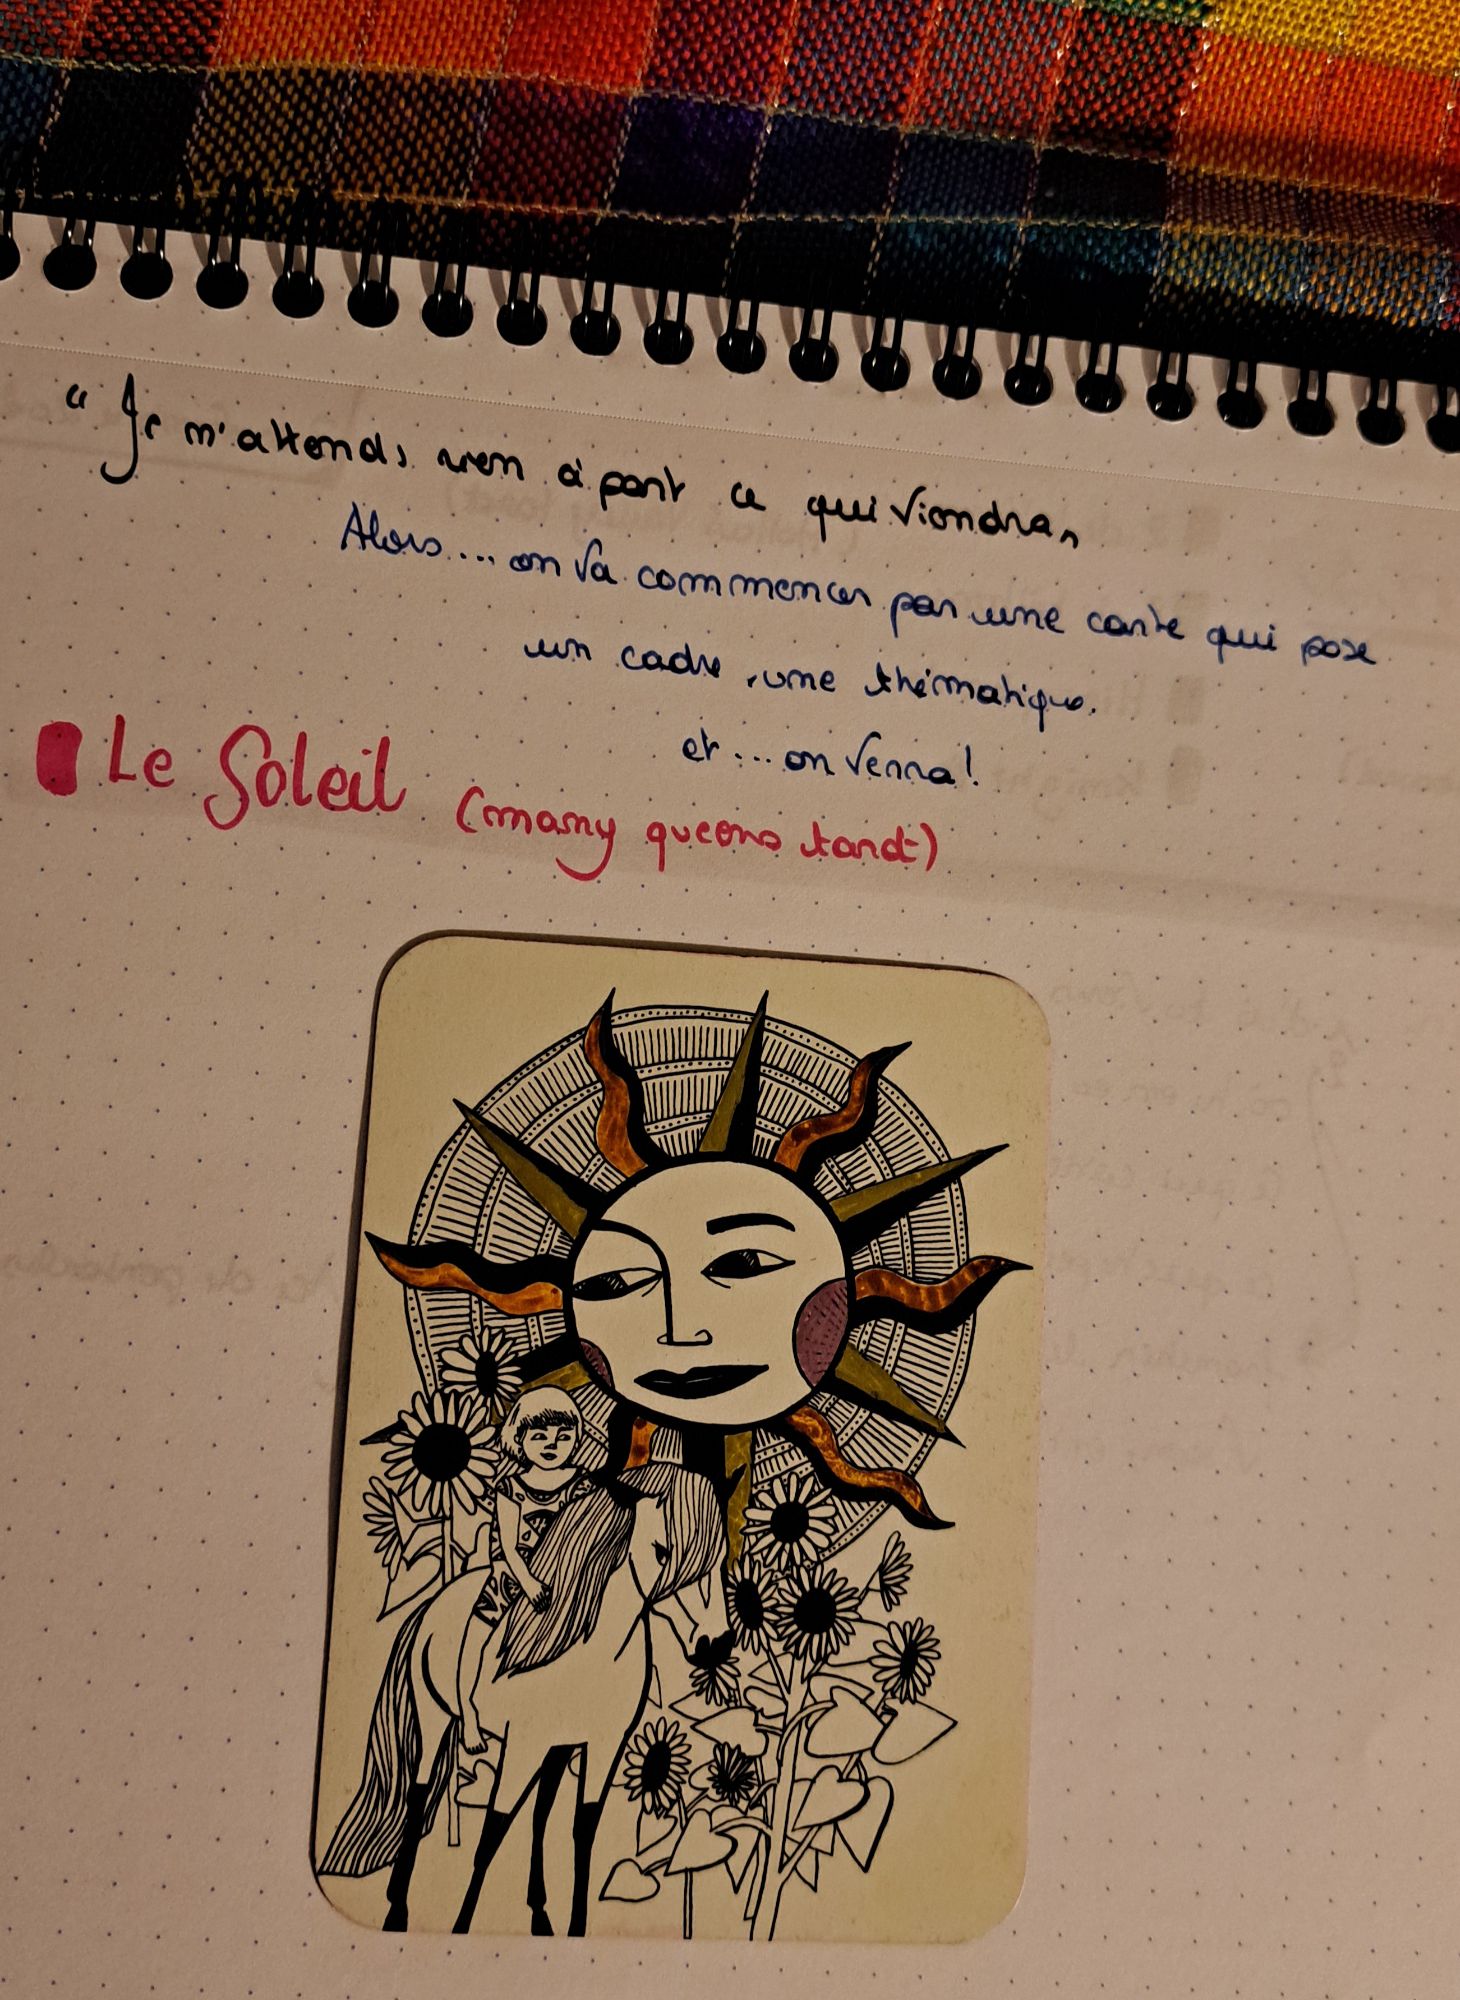 "Je m'attends rien à part ce qui viendra,
Alors.... on va commencer par une carte qui pose
un cadre, une thématique.
et ... on verra!
Le Soleil (many queens tarot)